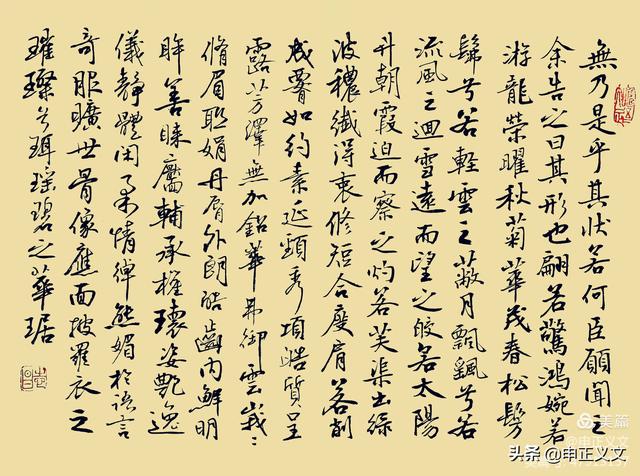 無乃是乎其狀若何臣願聞之
余告之曰其形也翩若驚鴻婉若
游龍榮曜秋菊華茂春松髣
髴兮若輕雲之蔽月飄飖兮若
流風之迴雪遠而望之皎若太陽
升朝霞迫而察之灼若芙渠出綠
波穠纖得衷修短合度肩若削
成腰如約素延頸秀項皓質呈
露芳澤無加鉛華弗御雲峩〻
脩眉聯娟丹脣外朗皓齒內鮮明
眸善睞靨輔承權瓌姿艷逸
儀靜體閑柔情綽態媚於語言
奇服曠世骨像應面披羅衣之
璀璨兮珥瑤碧之華琚
美篇
头条 @申正义文